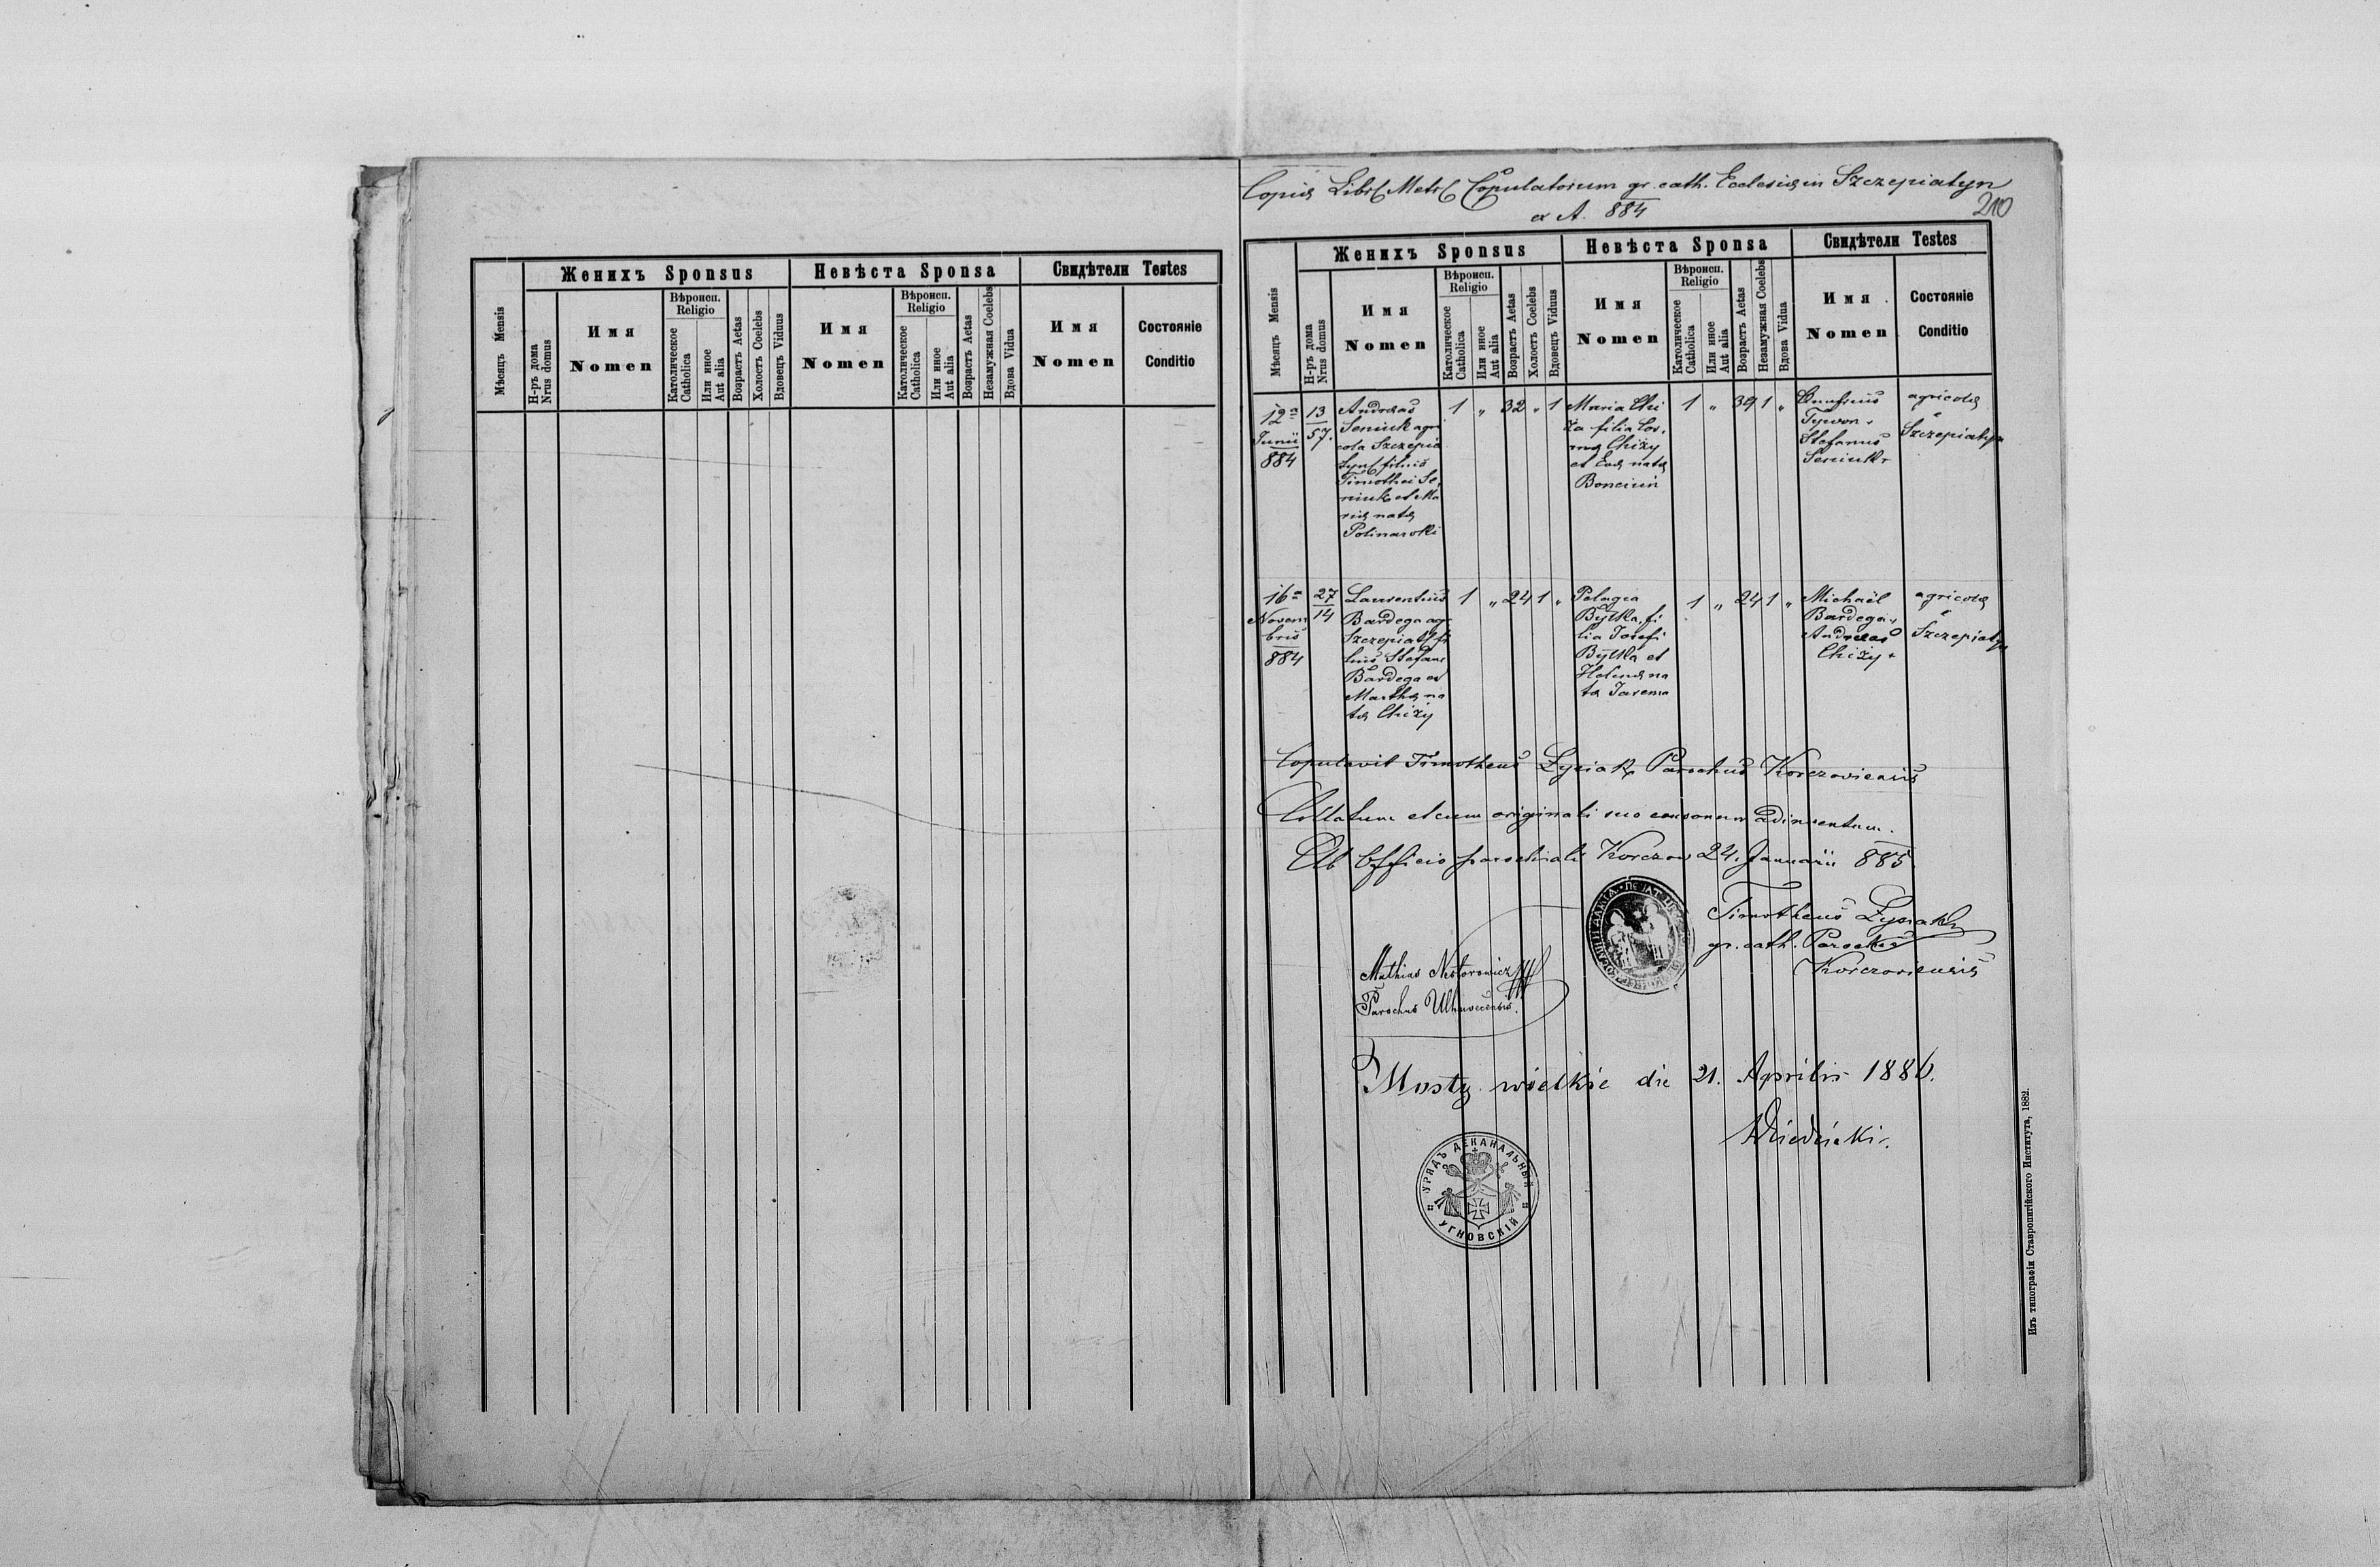 Мѣсяцъ Mensis
Н-ръ дома
Nrus domus
Женихъ Sponsus
Имя
Nomen
Вѣроисп.
Religio
Католическое
Catholica
Или иное
Aut alia
Возрастъ Aetas
Холостъ Coelebs
Вдовецъ Viduus
Невѣста Sponsa
Имя
Nomen
Вѣроисп.
Religio
Католическое
Catholica
Или иное
Aut alia
Возрастъ Aetas
Незамужная Coelebs
Вдова Vidua
Свидѣтели Testes
Имя
Nomen
Состояніе
Conditio
Copia Libr Metr Copulatorum gr. cath. Ecclesia in Szczepiatyn
A. 884
210
Мѣсяцъ Mensis
Н-ръ дома
Nrus domus
Женихъ Sponsus
Имя
Nomen
Вѣроисп.
Religio
Католическое
Catholica
Или иное
Aut alia
Возрастъ Aetas
Холостъ Coelebs
Вдовецъ Viduus
Невѣста Sponsa
Имя
Nomen
Вѣроисп.
Religio
Католическое
Catholica
Или иное
Aut alia
Возрастъ Aetas
Незамужная Coelebs
Вдова Vidua
Свидѣтели Testes
Имя
Nomen
Состояніе
Conditio
12a
Junii
884
13
57
Andreas
Seniuk agri
cola Szczepia
filius
Timothei Se
niuk et Ma
ria nata
Polinarski
1 „ 32 „ 1
Maria Chi
ża filia Cos
ma Chiży
et Eva nata
1 „ 39 1 „
Onufrius
Stefanus
Seniuk
agricola
Szczepiatyn
16a
Novem
bris
884
27
14
Laurentius
Bardega ag
Szczepiat fi
lius Stefani
Bardega et
Martha na
ta Chiży
1 „ 24 1 „
Pelagia
Bytka fi
lia Josefi
Bytka et
Helena na
ta Jarema
1 „ 24 1 „
Michaël
Bardega
Andreas
Chiży
agricola
Szczepiatyn
Copulavit Timotheus Łysiak Parochus Korczoviensis
Collatum et cum originali suo consonum adinventum.
Ab Officio parochiali Korczow 24. Januarii 885
Timotheus Łysiak
gr. cath. Parochus
Korczoviensis
Mathias Nestorowicz
Parochus Uhnoviensis.
Mosty wielkie die 21. Aprilis 1886.
УРЯДЪ ДЕКАНАЛЬНЫЙ
УГНОВСКІЙ
Изъ типографіи Ставропигійского Института, 1882.